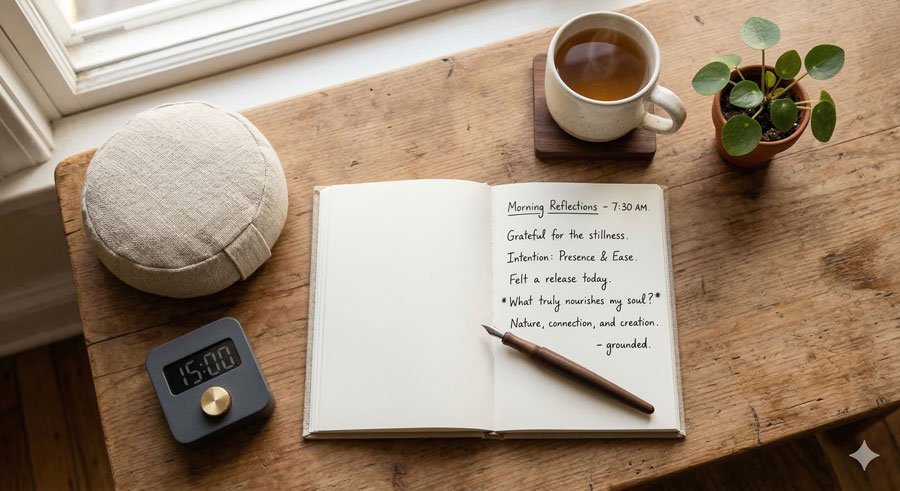 15:00
Morning Reflections - 7:30 AM.
Grateful for the stillness.
Intention: Presence & Ease.
Felt a release today.
*What truly nourishes my soul?*
Nature, connection, and creation.
- grounded.